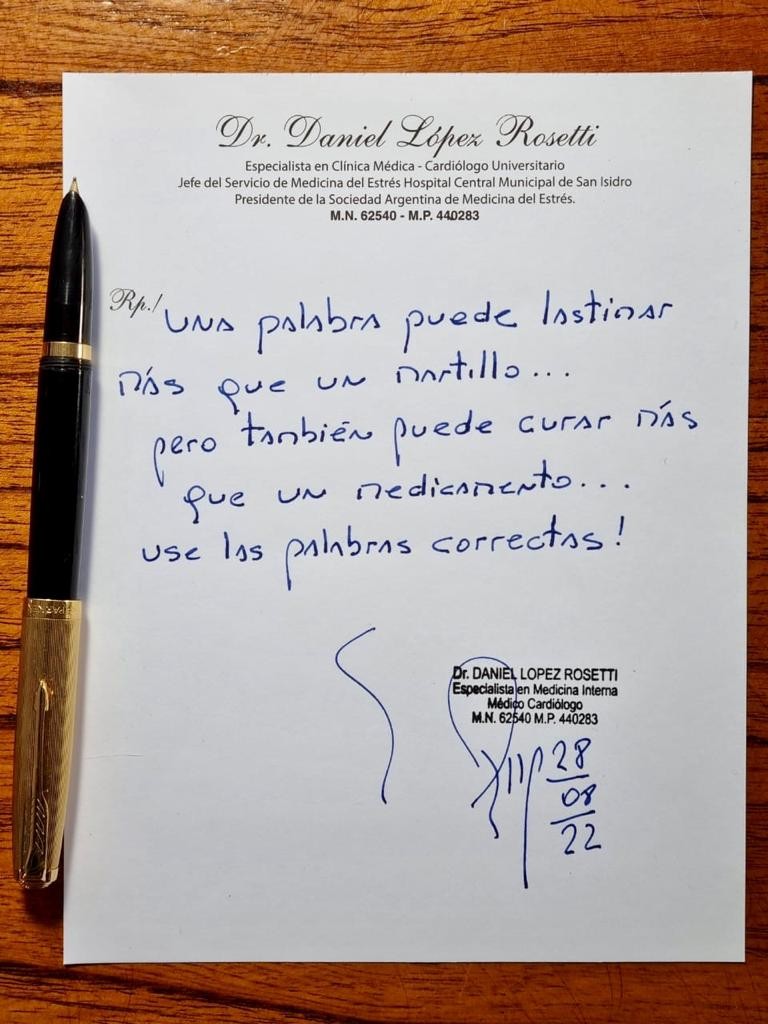 Dr. Daniel López Rosetti
Especialista en Clínica Médica - Cardiólogo Universitario
Jefe del Servicio de Medicina del Estrés Hospital Central Municipal de San Isidro
Presidente de la Sociedad Argentina de Medicina del Estrés.
M.N. 62540 - M.P. 440283
Rp./ Una palabra puede lastimar
más que un martillo...
pero también puede curar más
que un medicamento...
use las palabras correctas!
Dr. DANIEL LOPEZ ROSETTI
Especialista en Medicina Interna
Médico Cardiólogo
M.N. 62540 M.P. 440283
28
08
22
PARKER